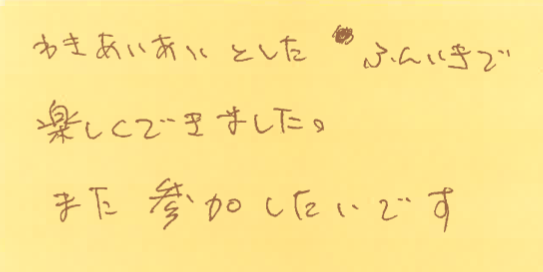 わきあいあいとした ふんいきで
楽しくできました。
また参加したいです